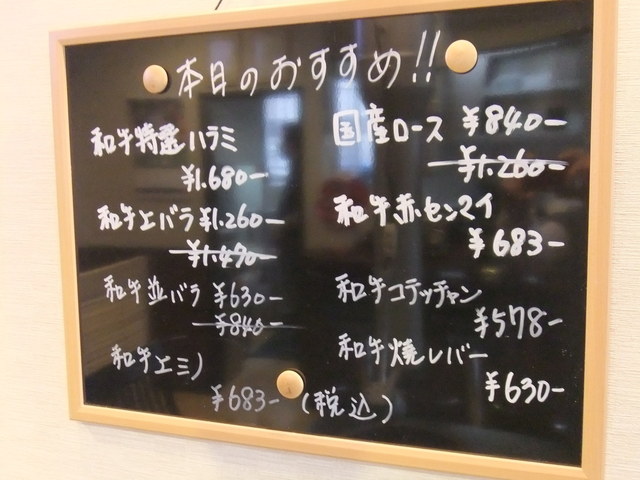 本日のおすすめ!!
和牛特選ハラミ
¥1.680-
和牛上バラ ¥1.260-
¥1.470-
和牛並バラ ¥630-
¥840-
和牛ミノ
¥683- (税込)
国産ロース ¥840-
¥1.260-
和牛赤センマイ
¥683-
和牛コテッチャン
¥578-
和牛焼レバー
¥630-